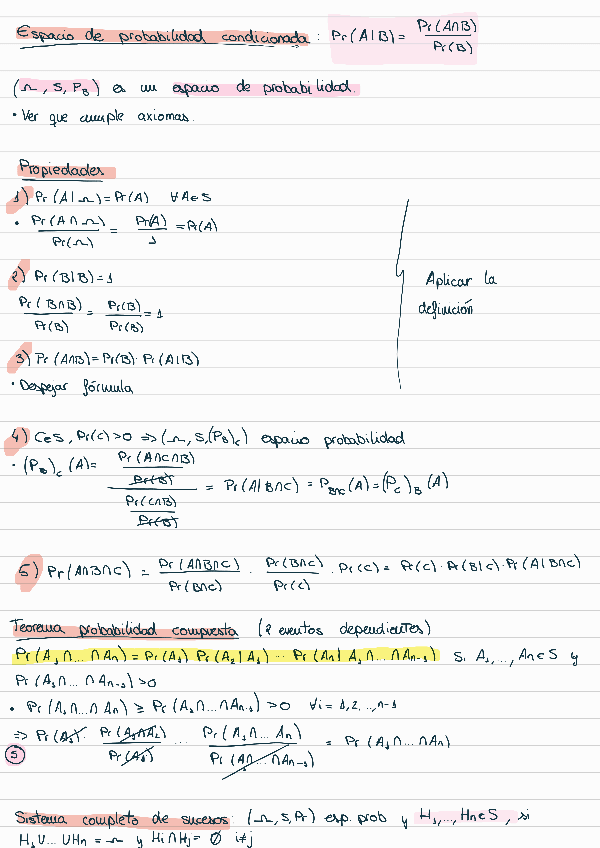 Espacio de probabilidad condicionada: Pr(A|B) = Pr(A∩B) / Pr(B)
(Ω, S, P_B) es un espacio de probabilidad.
• Ver que cumple axiomas.
Propiedades
1) Pr(A|Ω) = Pr(A) ∀A∈S
• Pr(A∩Ω) / Pr(Ω) = Pr(A) / 1 = Pr(A)
2) Pr(B|B) = 1
Pr(B∩B) / Pr(B) = Pr(B) / Pr(B) = 1
Aplicar la
definición
3) Pr(A∩B) = Pr(B) · Pr(A|B)
• Despejar fórmula
4) C∈S, Pr(C)>0 => (Ω, S, (P_B)_C) espacio probabilidad
• (P_B)_C (A) = (Pr(A∩C∩B) / Pr(B)) / (Pr(C∩B) / Pr(B)) = Pr(A|B∩C) = P_{B∩C}(A) = (P_C)_B (A)
5) Pr(A∩B∩C) = Pr(A∩B∩C) / Pr(B∩C) · Pr(B∩C) / Pr(C) · Pr(C) = Pr(C) · Pr(B|C) · Pr(A|B∩C)
Teorema probabilidad compuesta (2 eventos dependientes)
Pr(A₁∩...∩An) = Pr(A₁) Pr(A₂|A₁) ··· Pr(An|A₁∩...∩An-1) si A₁,..,An∈S y
Pr(A₁∩...∩An-1)>0
• Pr(A₁∩...∩An) ≥ Pr(A₁∩...∩An-1) >0 ∀i = 1,2,..,n-1
=> Pr(A₁) · Pr(A₁∩A₂) / Pr(A₁) ... Pr(A₁∩...An) / Pr(A₁∩...∩An-1) = Pr(A₁∩...∩An)
5
Sistema completo de sucesos: (Ω, S, Pr) esp. prob y H₁,..,Hn∈S, si
H₁∪...∪Hn = Ω y Hi∩Hj = Ø i≠j